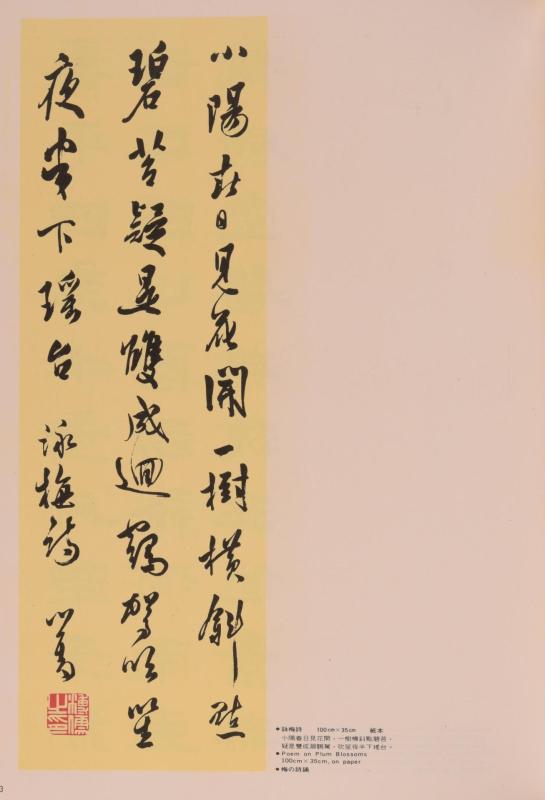 小陽春日見花開一樹橫斜點
碧苔疑是雙成迴鶴駕吹笙
夜半下瑤台 詠梅詩 心畬
溥儒之印
●詠梅詩 100cm×35cm 紙本
小陽春日見花開，一樹橫斜點碧苔，
疑是雙成迴鶴駕，吹笙夜半下瑤台。
●Poem on Plum Blossoms
100cm×35cm, on paper
●梅の詩論
3